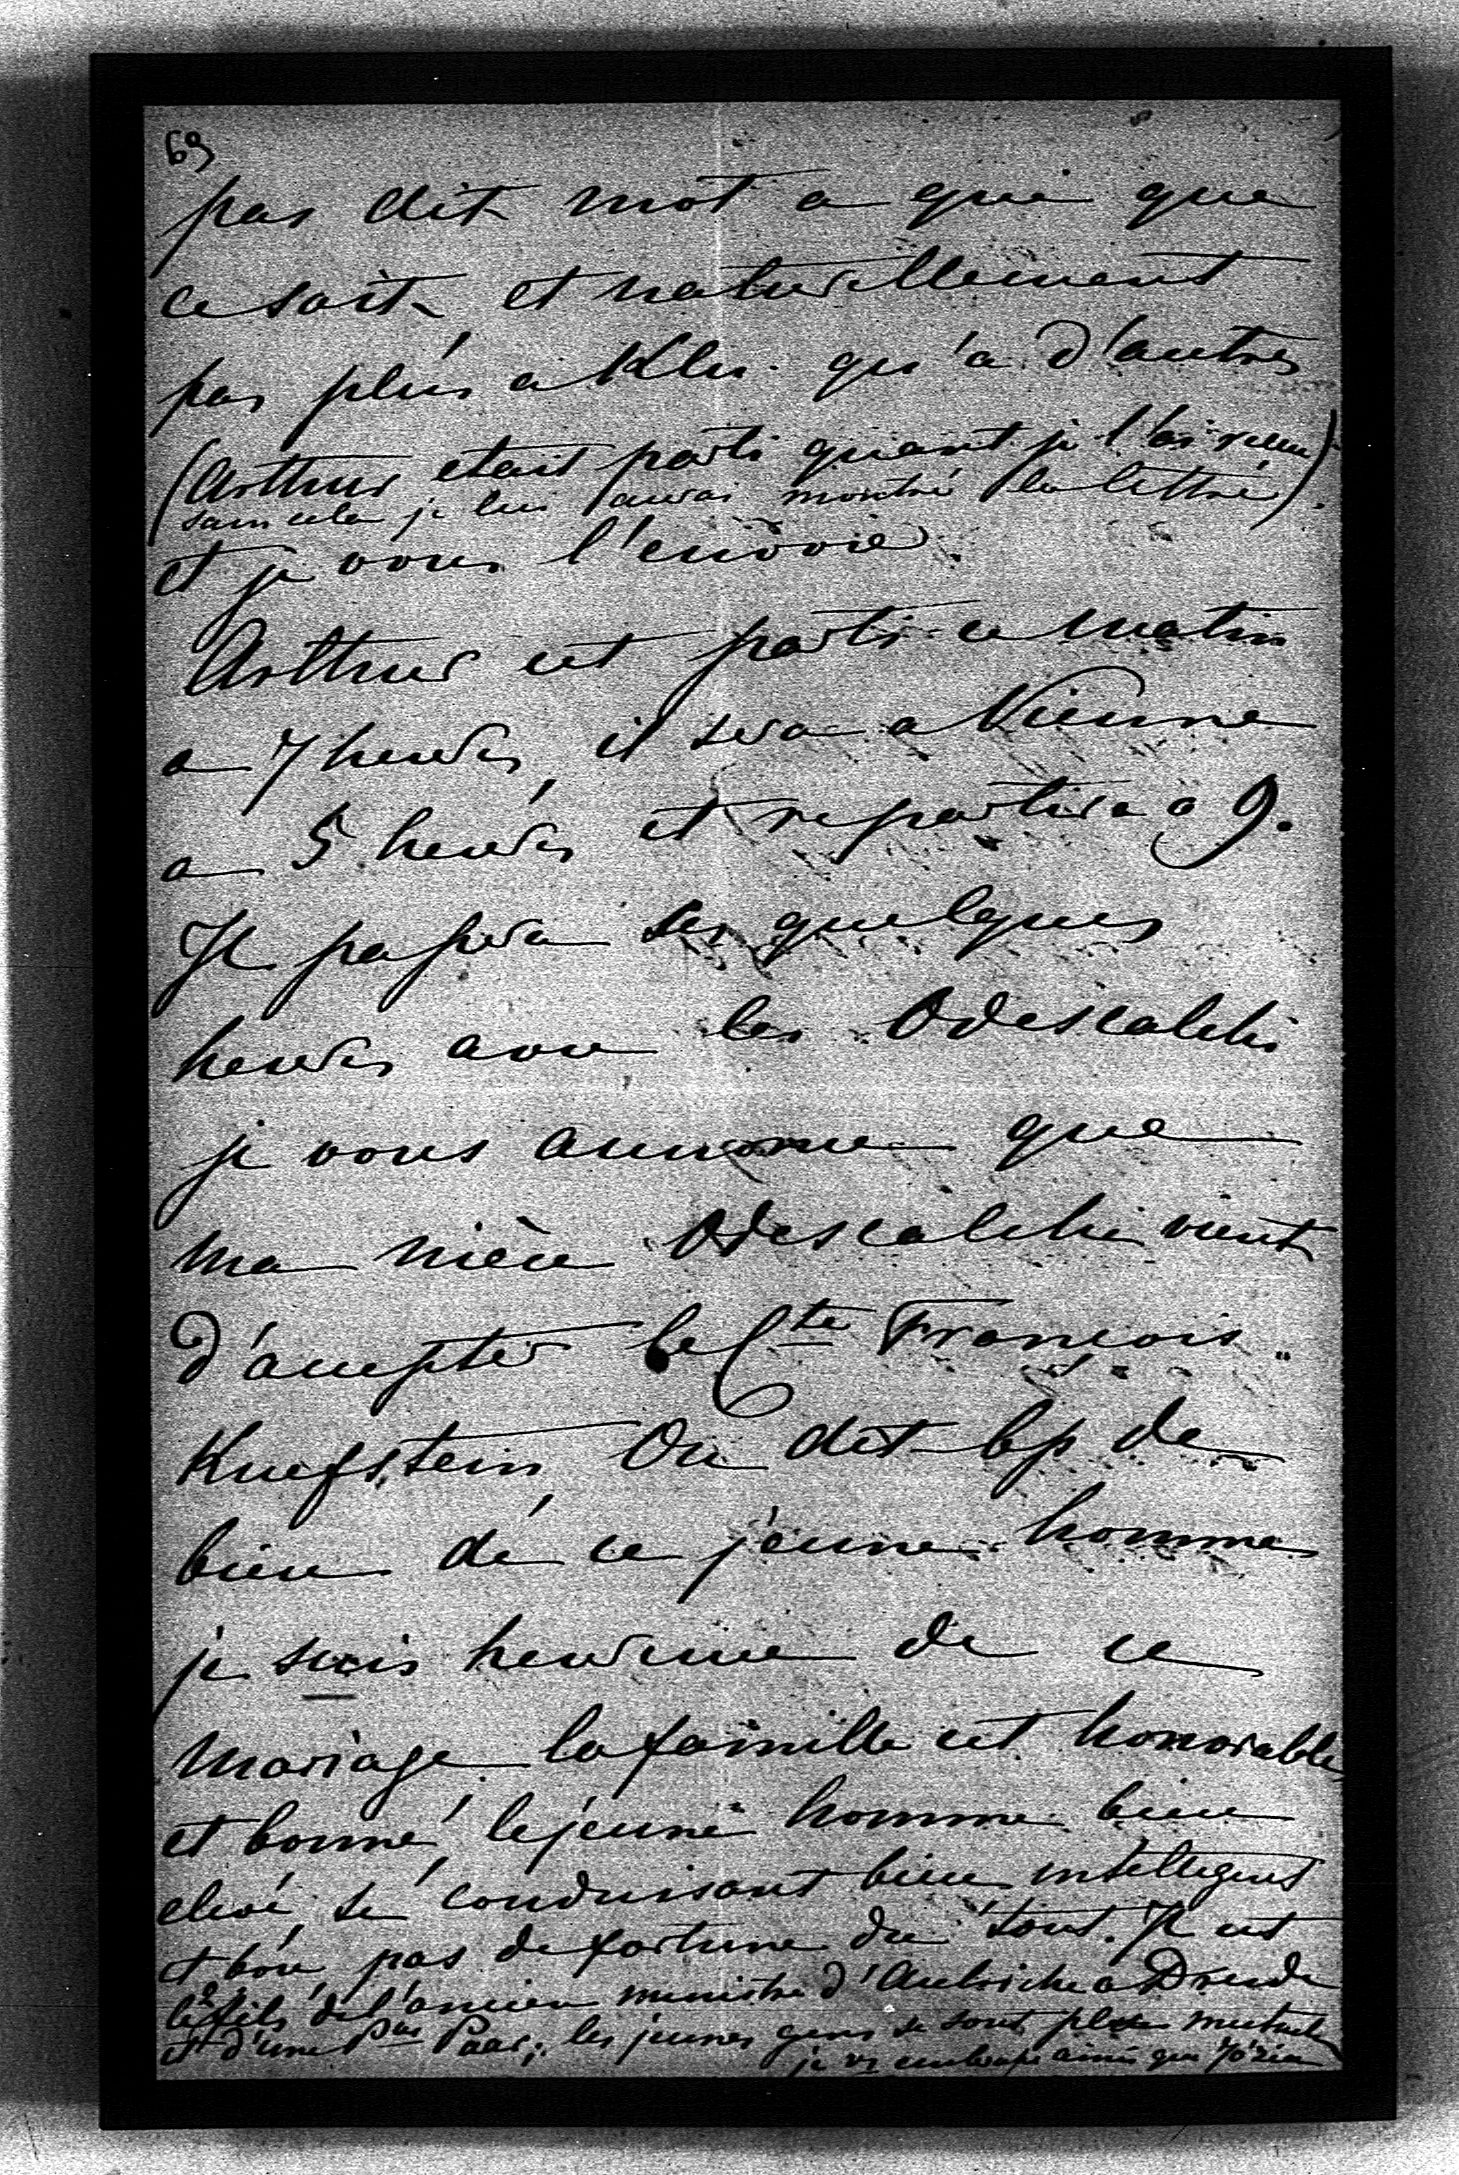 69
pas dit mot a qui que
ce soit et naturellement
pas plus a Klu. qu'a d'autres
(Arthur etait parti quant je l'ai reçu)
sans cela je lui aurai montré la lettre)
et je vous l'envoie.
Arthur est parti ce matin
a 7 heures, il sera a Vienne
a 5 heures et repartira a 9.
Il passera ses quelques
heures avec les Odescalchi
je vous annonce que
ma nièce Odescalchi vient
d'accepter le Cte François
Kuefstein On dit bp de
bien de ce jeune homme
je suis heureuse de ce
mariage la famille est honorable
et bonne, le jeune homme bien
elevé se conduisant bien intelligent
et bon pas de fortune du tout. Il est
le 2d fils de l'ancien ministre d'Autriche a Dresde
et d'une Pss Paar; les jeunes gens se sont plus mutuel
je vs embrasse ainsi que